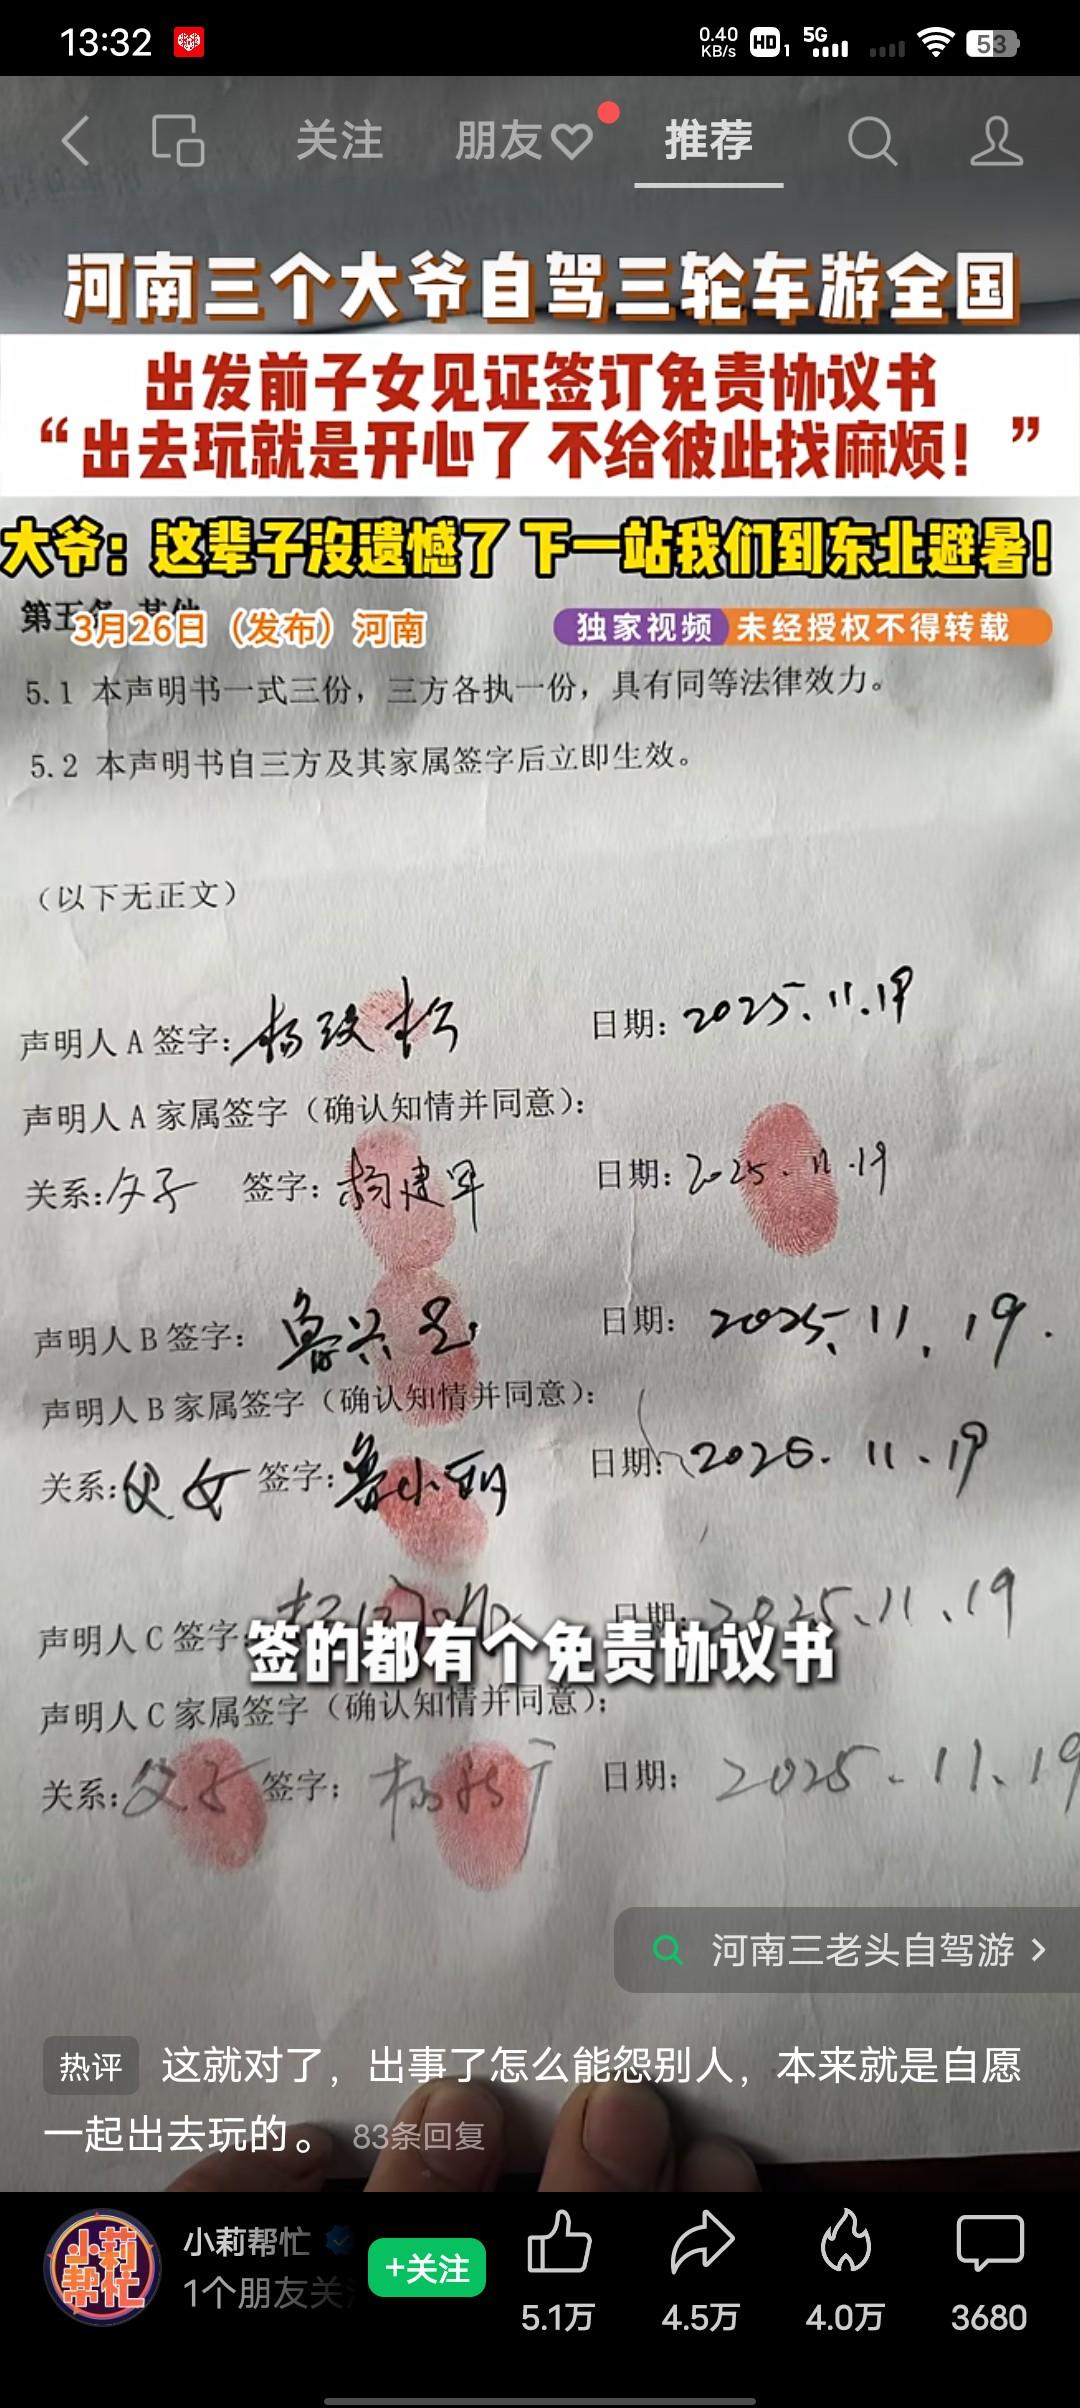 13:32
0.40 KB/s HD 1 5G 53
关注 朋友 推荐
河南三个大爷自驾三轮车游全国
出发前子女见证签订免责协议书
“出去玩就是开心了 不给彼此找麻烦！”
大爷：这辈子没遗憾了 下一站我们到东北避暑！
第五条 其他
3月26日（发布）河南
独家视频 未经授权不得转载
5.1 本声明书一式三份，三方各执一份，具有同等法律效力。
5.2 本声明书自三方及其家属签字后立即生效。
（以下无正文）
声明人 A 签字： 日期：2025.11.19
声明人 A 家属签字（确认知情并同意）：
关系：父子 签字：杨建军 日期：2025.11.19
声明人 B 签字： 日期：2025.11.19.
声明人 B 家属签字（确认知情并同意）：
关系：父女 签字：鲁小丽 日期：2025.11.19
声明人 C 签字： 日期：2025.11.19
签的都有个免责协议书
声明人 C 家属签字（确认知情并同意）：
关系：父子 签字： 日期：2025.11.19
河南三老头自驾游
热评 这就对了，出事了怎么能怨别人，本来就是自愿
一起出去玩的。 83条回复
小莉帮忙
小莉帮忙 +关注
1个朋友关
5.1万 4.5万 4.0万 3680